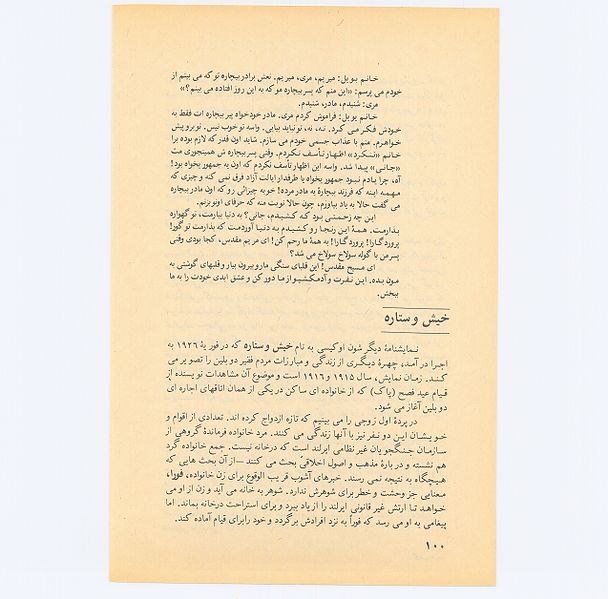 خـانـم بـو یـل: میریـم، مری، میریـم. نعش برادر بیچاره تو که می بینم از
خودم می پرسم: «این منم که پسر بیچاره مو که به این روز افتاده می بینم؟»
مری: شنیدم، مادر، شنیدم.
خـانـم بو یل: فراموش کردم مری. مادر خودخواه پیر بیچاره ات فقط به
خـودش فکـر مـی کـرد. نـه، نه، تو نباید بیایی. واسه تو خوب نیس. تو برو پیش
خـواهـرم. منم با عذاب جسمی خودم می سازم. شاید اون قدر که لازم بوده برا
خـانم «تنـکرد» اظهـار تـأسـف نکـردم. وقتی پسر بیچاره ش همینجوری مث
«جـانـی» پیـدا شـد. واسه این اظهار تأسف نکردم که اون یه جمهور یخواه بود!
آه، چرا یـادم نبـود جمهور یخواه یا طرفدار ایالت آزاد فرقی نمی کنه و چیزی که
مـهـمـه اینـه که فرزند بیچارهٔ یه مادر مرده! خو به چیزائی رو که اون مادر بیچاره
می گفت حالا به یاد بیاوزم، چون حالا نوبت منه که حرفای اونو بزنم.
ایـن چـه زحـمـتـی بـود کـه کـشـیـدم، جانی؟ به دنیا بیارمت، تو گهواره
بـذارمـت. هـمـهٔ ایـن رنـجـا رو کـشـیـدم بـه دنـیـا آوردمـت که بذارمت تو گور!
پروردگـارا! پروردگـارا! به همهٔ ما رحم کن! ای مریم مقدس، کجا بودی وقتی
پسر من با گوله سولاخ سولاخ می شد؟
ای مسیح مقدس! این قلبای سنگی مارو بیرون بیار و قلبهای گوشتی به
مـون بـده. ایـن نـفـرت و آدمـکـشـیـو از مـا دور کن و عشق ابدی خودت را به ما
ببخش.
خیش و ستاره
نـمـایشنامهٔ دیگر شون اوکیسی به نام خیش و ستاره که در فوریهٔ ۱۹۲۶ به
اجـرا در آمـد، چهـرهٔ دیـگـری از زندگی و مبارزات مردم فقیر دو بلین را تصویر می
کـنـد. زمـان نمایش، سال ۱۹۱۵ و ۱۹۱۶ است و موضوع آن مشاهدات نو یسنده از
قـیـام عید فصح (پاک) که از خانواده ای ساکن در یکی از همان اتاقهای اجاره ای
دو بلین آغاز می شود.
در پردهٔ اول زوجی را می بینیم که تازه ازدواج کرده اند. تعدادی از اقوام و
خـو یـشـان ایـن دو نـفـر نیز با آنها زندگی می کنند. مرد خانواده فرماندهٔ گروهی از
سـازمـان جـنـگجو یان غیر نظامی ایرلند است که درخانه نیست. جمع خانواده گرد
هم نشسته و در بارهٔ مذهب و اصول اخلاقی بحث می کنند —از آن بحث هایی که
هیـچگاه به نتیجه نمی رسند. خبرهای آشوب قر یب الوقوع برای زن خانواده، فوراً،
معنایی جز وحشت و خطر برای شوهرش ندارد. شوهر به خانه می آید و زن از او می
خـواهـد تـا ارتش غیر قانونی ایرلند را از یاد ببرد و برای استراحت درخانه بماند. اما
پیغامی به او می رسد که فوراً به نزد افرادش برگردد و خود را برای قیام آماده کند.
۱۰۰